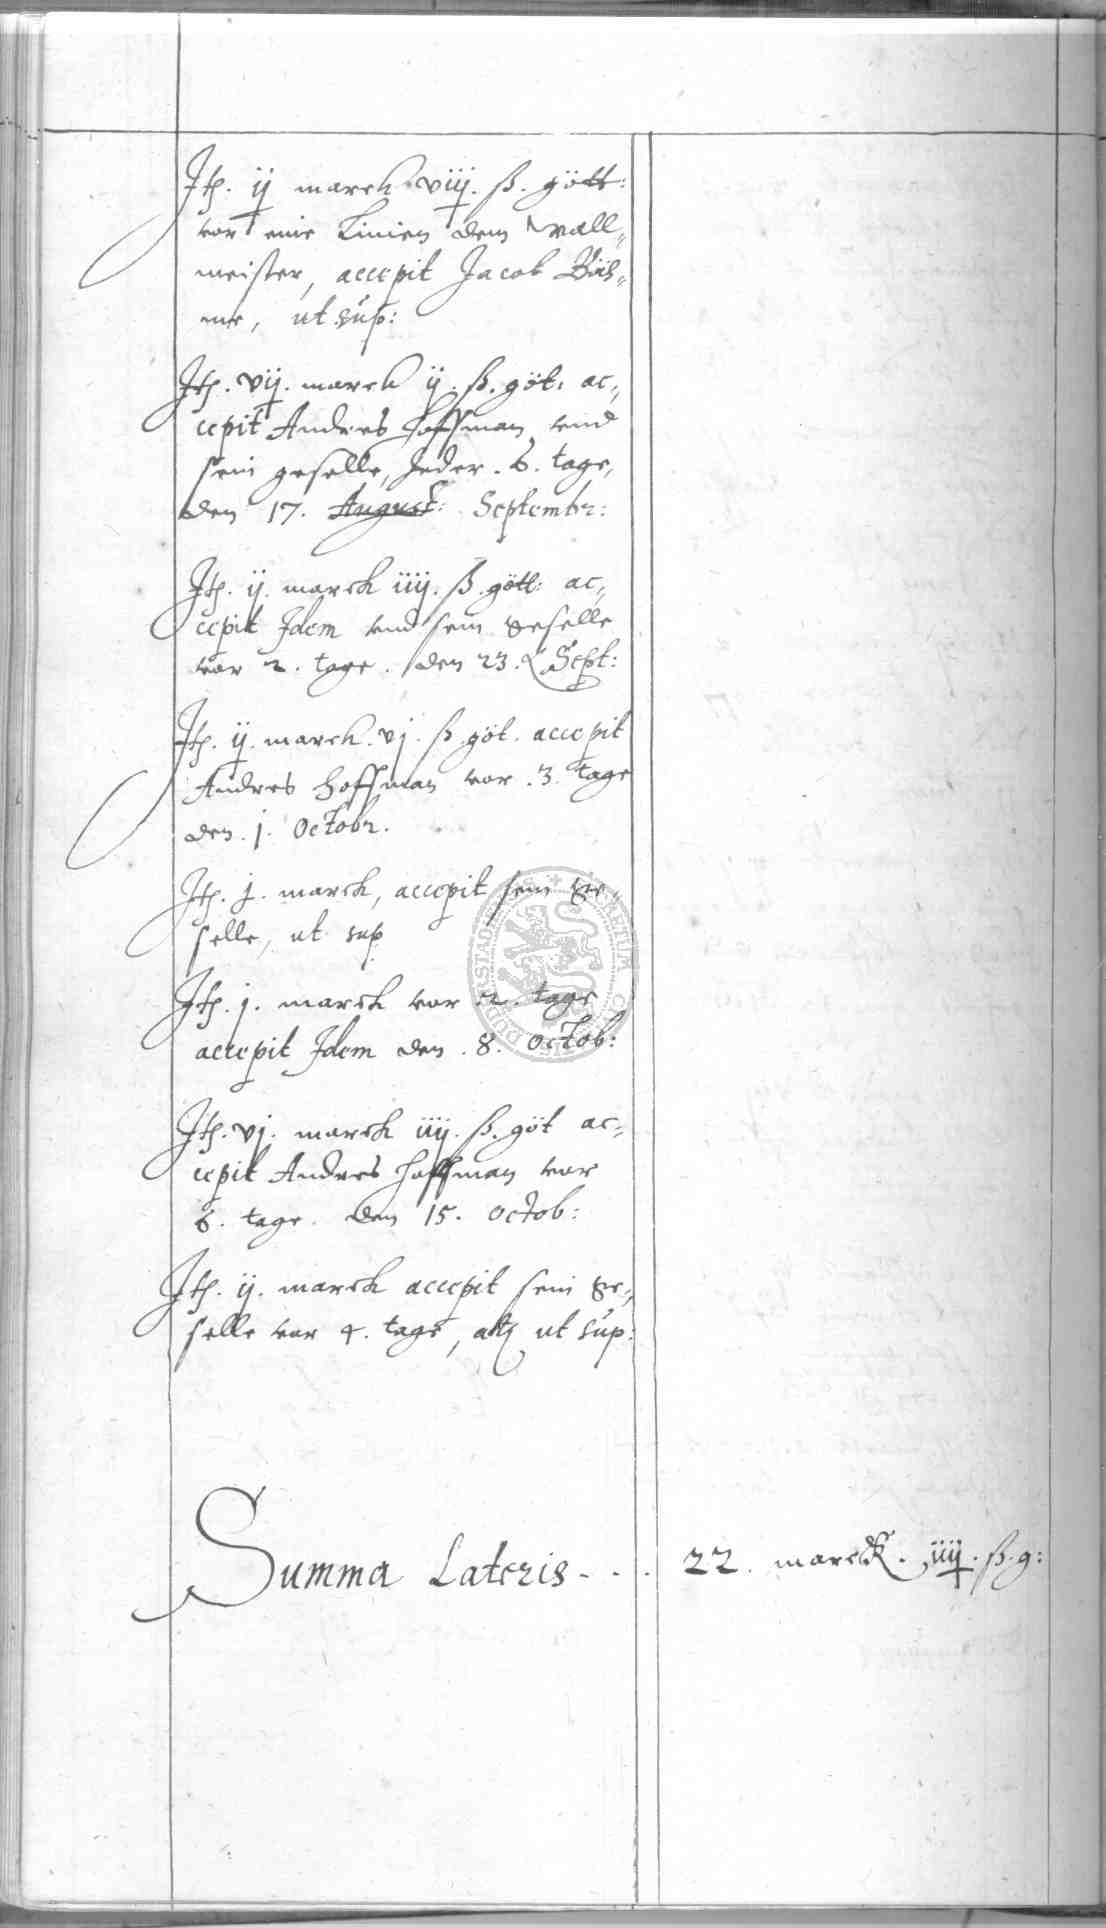 Ith. ij marck viij. ß. gött:
vor eine Linien dem Wall„
meister, accepit Jacob Böh„
me, ut sup:
Ith. vij. marck ij. ß. göt: ac„
cepit Andres Hoffman vnd
sein geselle, Jeder. 6. tage,
den 17. August: Septembr:
Ith. ij. marck iiij. ß. gött: ac„
cepit Idem vnd sein Geselle
vor 2. tage. den 23. Sept:
Ith. ij. marck. vj. ß. göt. accepit
Andres Hoffman vor. 3. tage
den. j. Octobr.
Ith. j. marck, accepit sein Ge„
selle, ut sup
Ith. j. marck vor 2. tage
accepit Idem den. 8. Octob:
Ith. vj. marck iiij. ß. göt ac„
cepit Andres Hoffman vor
6. tage. den 15. Octob:
Ith. ij. marck accepit sein Ge„
selle vor 4. tage, ut sup:
Summa Lateris - . . 22. marck. iiij. ß. g: